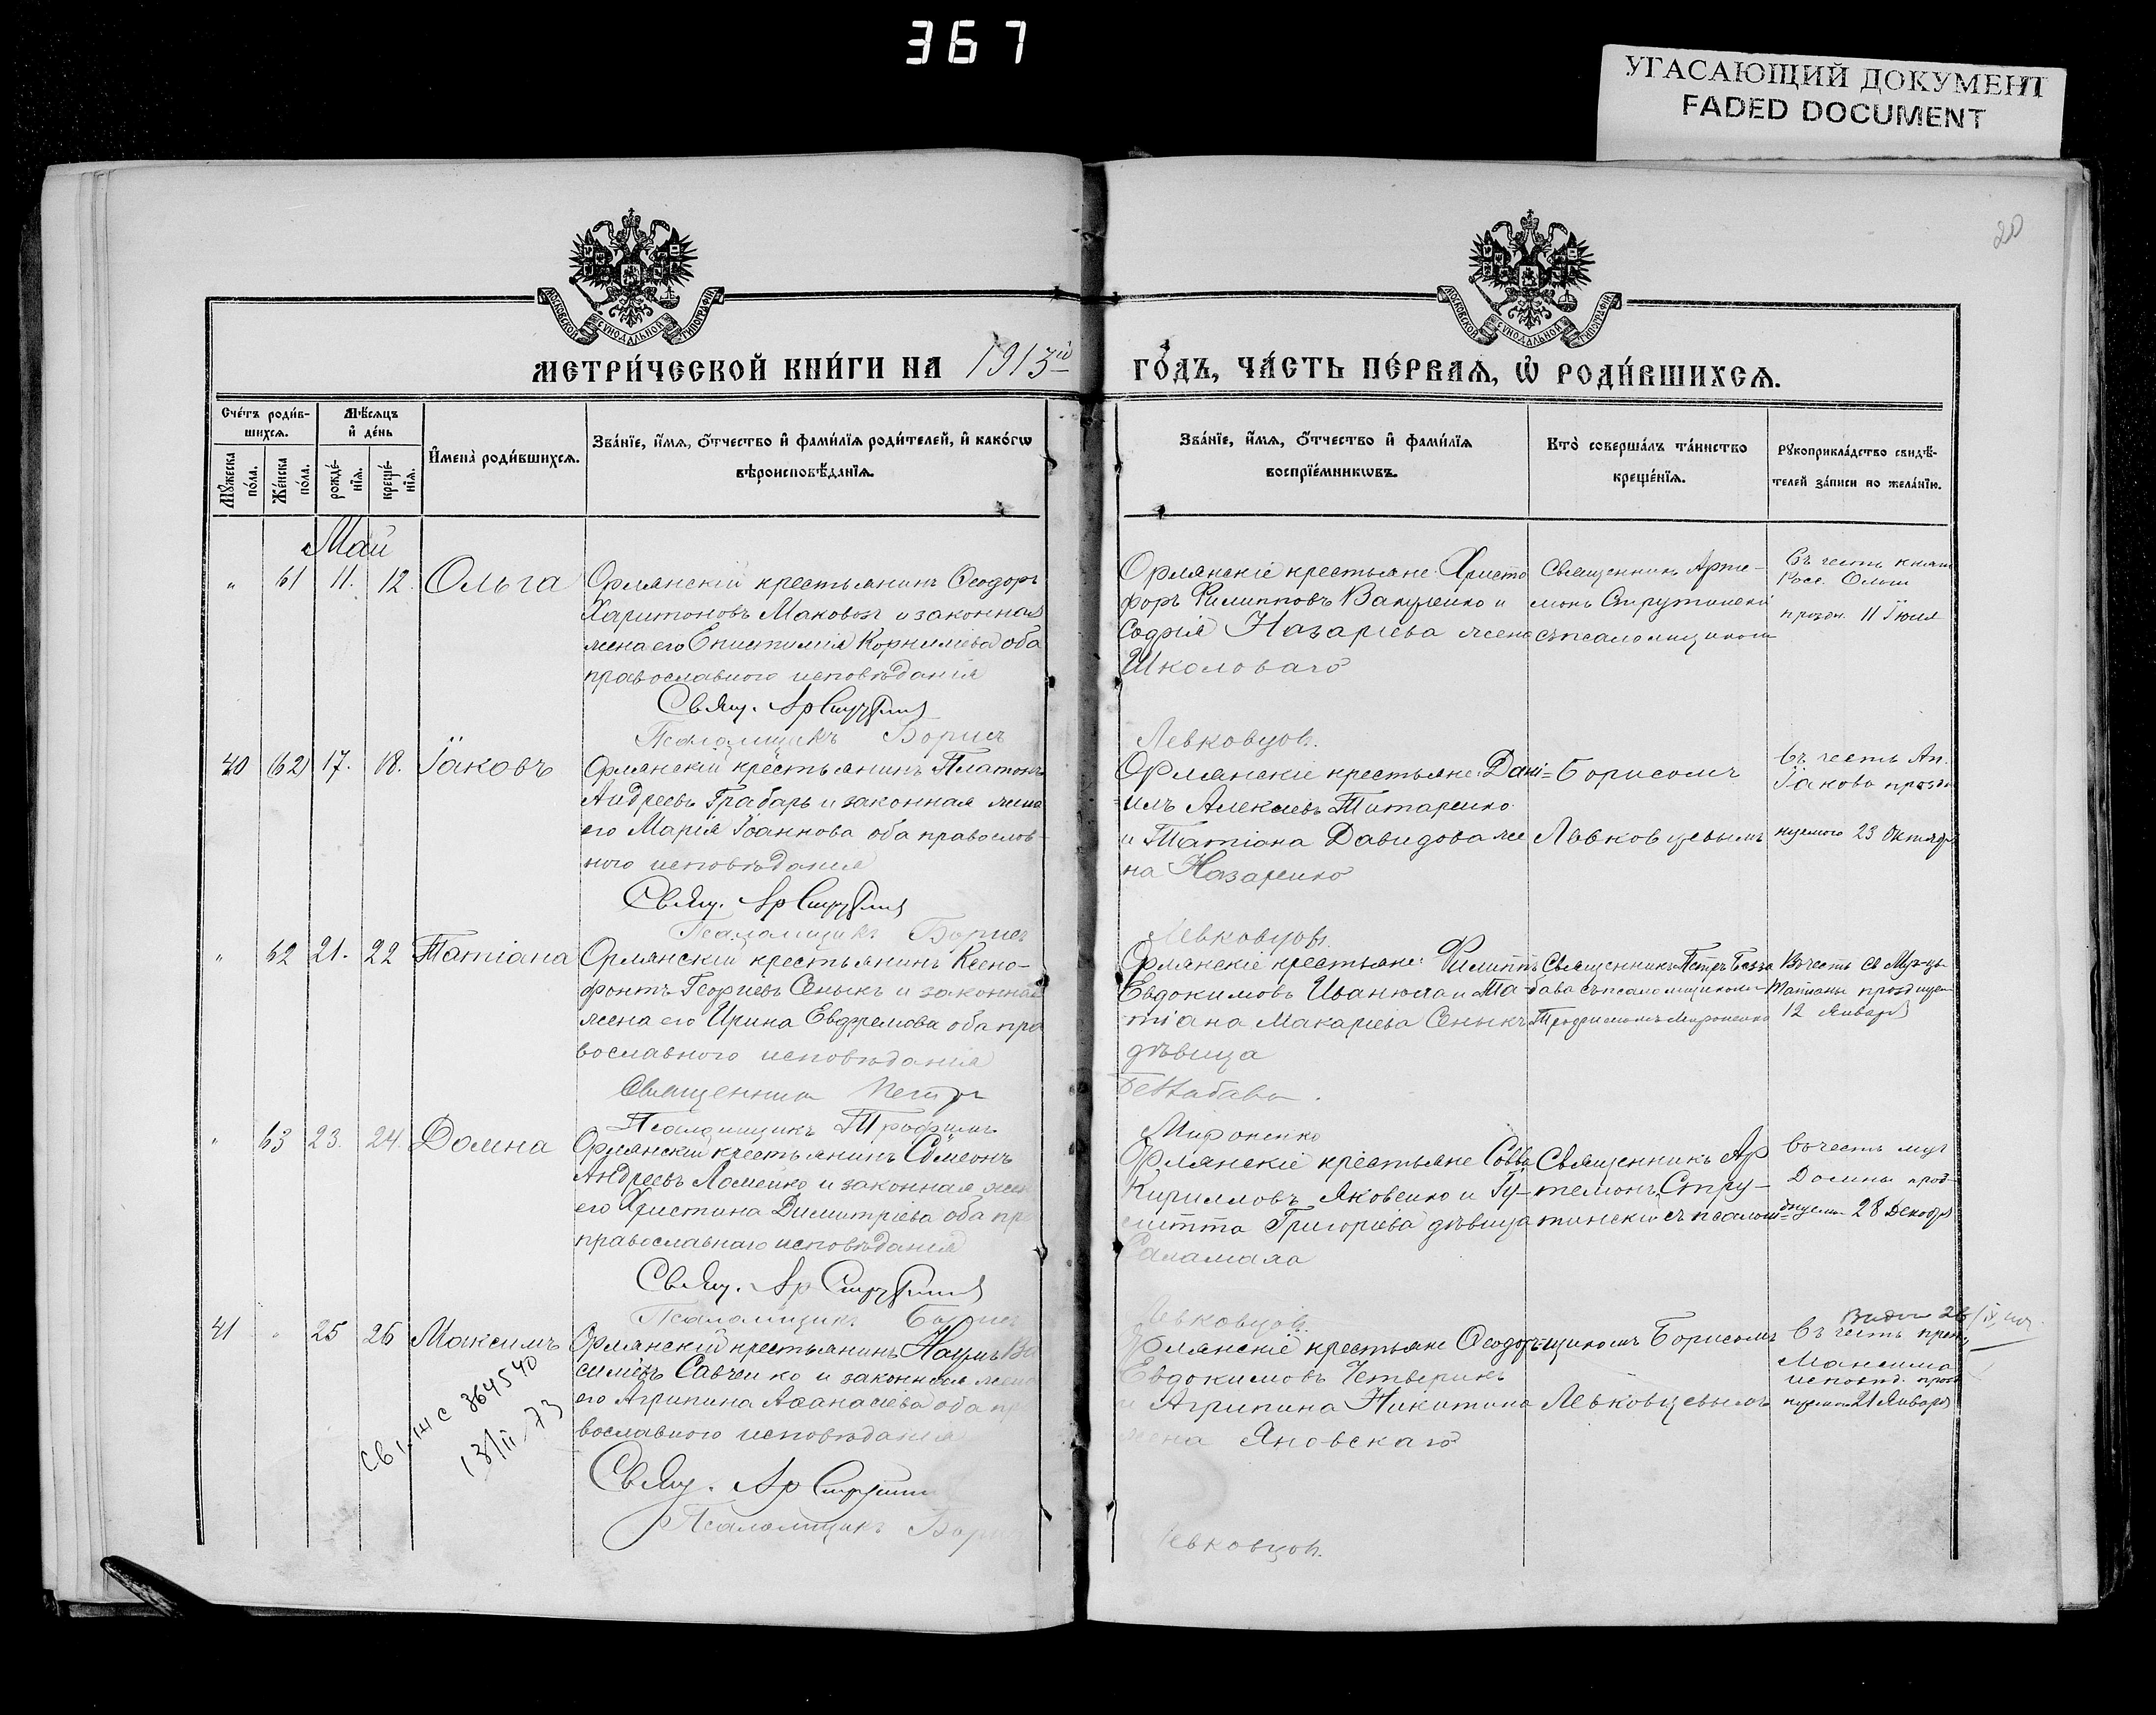 367
УГАСАЮЩИЙ ДОКУМЕНТ
FADED DOCUMENT
20
МОСКОВСКОЙ СѴНОДАЛЬНОЙ ТИПОГРАФІИ
МОСКОВСКОЙ СѴНОДАЛЬНОЙ ТИПОГРАФІИ
МЕТРИ́ЧЕСКОЙ КНИ́ГИ НА 1913й
ГО́ДЪ, ЧА́СТЬ ПЕ́РВАѦ, Ѡ҆ РОДИ́ВШИХСѦ.
Сче́тъ роди́в-
шихсѧ.
Мѣ́сѧцъ
и҆ де́нь
Мꙋ́жеска
по́ла.
Же́нска
по́ла.
рожде́-
нїѧ.
креще́-
нїѧ.
И҆мена̀ роди́вшихсѧ.
Зва́нїе, и҆́мѧ, ѻ҆́тчество и҆ фамѝлїѧ роди́телей, и҆ како́гѡ
вѣроисповѣ́данїѧ.
Зва́нїе, и҆́мѧ, ѻ҆́тчество и҆ фами́лїѧ
воспрїе́мникѡвъ.
Кто̀ соверша́лъ та́инство
креще́нїѧ.
Рꙋкоприкла́дство свидѣ́-
телей за́писи по жела́нїю.
Май
" 61 11. 12. Ольга
Орлянскій крестьянинъ Ѳеодоръ
Харитоновъ Маковоз и законная
жена его Епистимія Корнилиева оба
православного исповѣданія
Свящ. Ар Струтин
Псаломщикъ Борис
Орлянскіе крестьяне Христо
форъ Филипповъ Вакуленко и
Софія Назаріева жена
Школоваго
Левковцов.
Священникъ Арте-
монъ Струтинскій
съ псаломщикомъ
Въ честь княг
Росс. Ольги
празд. 11 Іюля
40 (62) 17. 18. Іаковъ
Орлянскій крестьянинъ Платонъ
Андреевъ Грабарь и законная жена
его Марія Іоаннова оба православ-
ного исповѣданія
Свящ. Ар Струтин
Псаломщикъ Борис
Орлянскіе крестьяне: Дані=
=илъ Алексѣевъ Титаренко
и Татіана Давидова же
на Назаренко
Левковцов.
Борисомъ
Левковцевымъ
Въ честь Ап.
Іакова праздн
нуемого 23 Октябр
" 62 21. 22 Татіана
Орлянскій крестьянинъ Ксено-
фонтъ Георгіевъ Сеныкъ и законная
жена его Ирина Евфремова оба пра
вославного исповѣданія
Священник Петр
Псаломщикъ Трофимъ
Орлянскіе крестьяне: Филиппъ
Евдокимовъ Иванюта и Та-
тіана Макаріева Сеныкъ
дѣвица
Беззабава.
Мироненко
Священникъ Петръ Безза
бава съ псаломщикомъ
Трофимомъ Мироненко
Въ честь св Муч-цы
Татіаны празднуем
12 Января
" 63 23. 24. Домна
Орлянскій крестьянинъ Сѵмеонъ
Андреевъ Ломейко и законная жена
его Христина Димитріева оба пра
православнаго исповѣданія
Свящ. Ар Струтин
Псаломщик Борис
Орлянскіе крестьяне Савва
Кириловъ Яковенко и Гу-
Григоріева дѣвица
Саламаха
Левковцов.
Священникъ Ар
темонъ Стру-
тинскій съ псалом=
въ честь муч
Домны празд-
днуемой 28 Декабр
41 " 25 26 Максимъ
Орлянскій крестьянинъ Наумъ Ва
силіевъ Савченко и законная жена
его Агрипина Аѳанасіева оба пра
вославного исповѣданія
Свящ. Ар Струтин
Псаломщикъ Борис
Орлянскіе крестьяне Ѳеодоръ
Евдокимовъ Четверикъ
и Агрипина Никитина
жена Яновскаго
Левковцов.
щикомъ Борисомъ
Левковцевымъ
Въ честь преп
Максима
исповѣд. празд
нуемаго 21 Января
364540
13/II 73